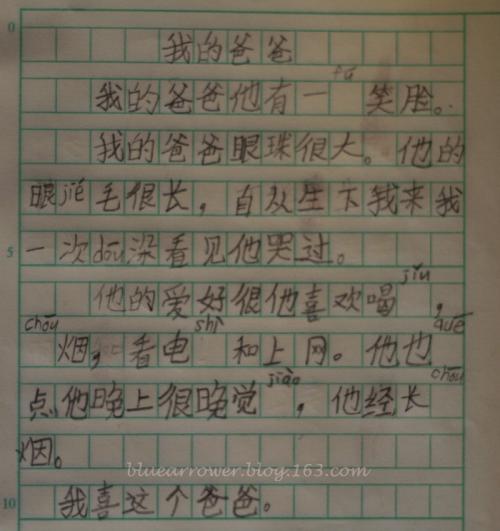 0
我的爸爸
我的爸爸他有一fù笑脸。
我的爸爸眼珠很大。他的
眼jié毛很长，自从生下我来我
5 一次dōu没看见他哭过。
他的爱好很他喜欢喝jiǔ，
chōu烟，看电shì和上网。他也quē
点他晚上很晚觉jiào，他经长chōu
烟。
bluearrower.blog.163.com
10 我喜这个爸爸。